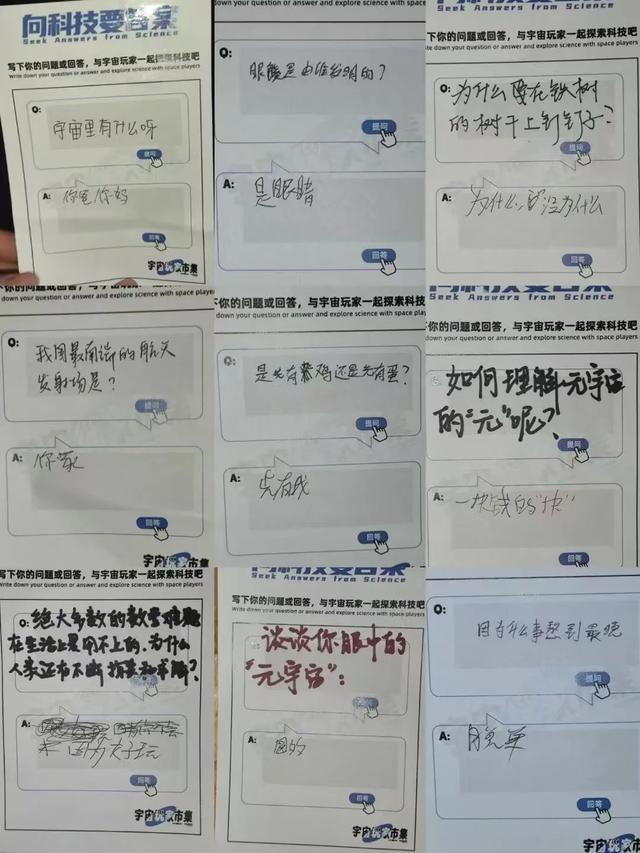 向科技要答案
Seek Answers from Science
写下你的问题或回答，与宇宙玩家一起探索科技吧
Write down your question or answer and explore science with space players
Q:
宇宙里有什么呀
提问
A:
你爸你妈
回答
宇宙玩家市集
Q:
眼镜是由谁发明的？
提问
A:
是眼睛
回答
Seek Answers from Science
写下你的问题或回答，与宇宙玩家一起探索科技吧
Write down your question or answer and explore science with space players
Q:
为什么要在铁树
的树干上钉钉子？
提问
A:
为什么，没为什么
回答
你的问题或回答，与宇宙玩家一起探索科技吧
down your question or answer and explore science with space players
Q:
我国最南端的航天
发射场是？
提问
A:
你家
回答
宇宙玩家市集
下你的问题或回答，与宇宙玩家一起探索科技吧
down your question or answer and explore science with space players
Q:
是先有鸡还是先有蛋？
提问
A:
先有我
回答
Seek Answers from Science
写下你的问题或回答，与宇宙玩家一起探索科技吧
Write down your question or answer and explore science with space players
如何理解元宇宙
的“元”呢？
提问
A:
一块钱的“块”
回答
写下你的问题或回答，与宇宙玩家一起探索科技吧
Write down your question or answer and explore science with space players
Q:
绝大多数的数学难题
在生活上是用不上的，为什么
人类还在不断探索和求解？
A:
因为太好玩
回答
宇宙玩家市集
向科技要答案
Seek Answers from Science
写下你的问题或回答，与宇宙玩家一起探索科技吧
Write down your question or answer and explore science with space players
谈谈你眼中的
“元宇宙”：
提问
A:
圆的
回答
宇宙玩家市集
因为什么事熬到最晚
提问
A:
回答
宇宙玩家市集